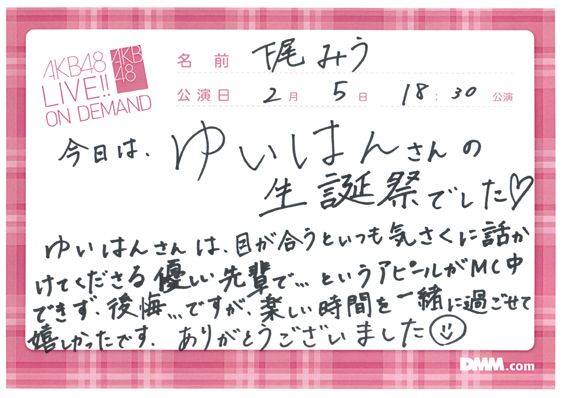 AKB48
LIVE!!
ON DEMAND
AKB
48
名前 下尾みう
公演日 2月 5日 18:30 公演
今日は、ゆいはんさんの
生誕祭でした♡
ゆいはんさんは、目が合うといつも気さくに話か
けてくださる優しい先輩で…というアピールがMC中
できず、後悔…ですが、楽しい時間を一緒に過ごせて
嬉しかったです。ありがとうございました☺
DMM.com